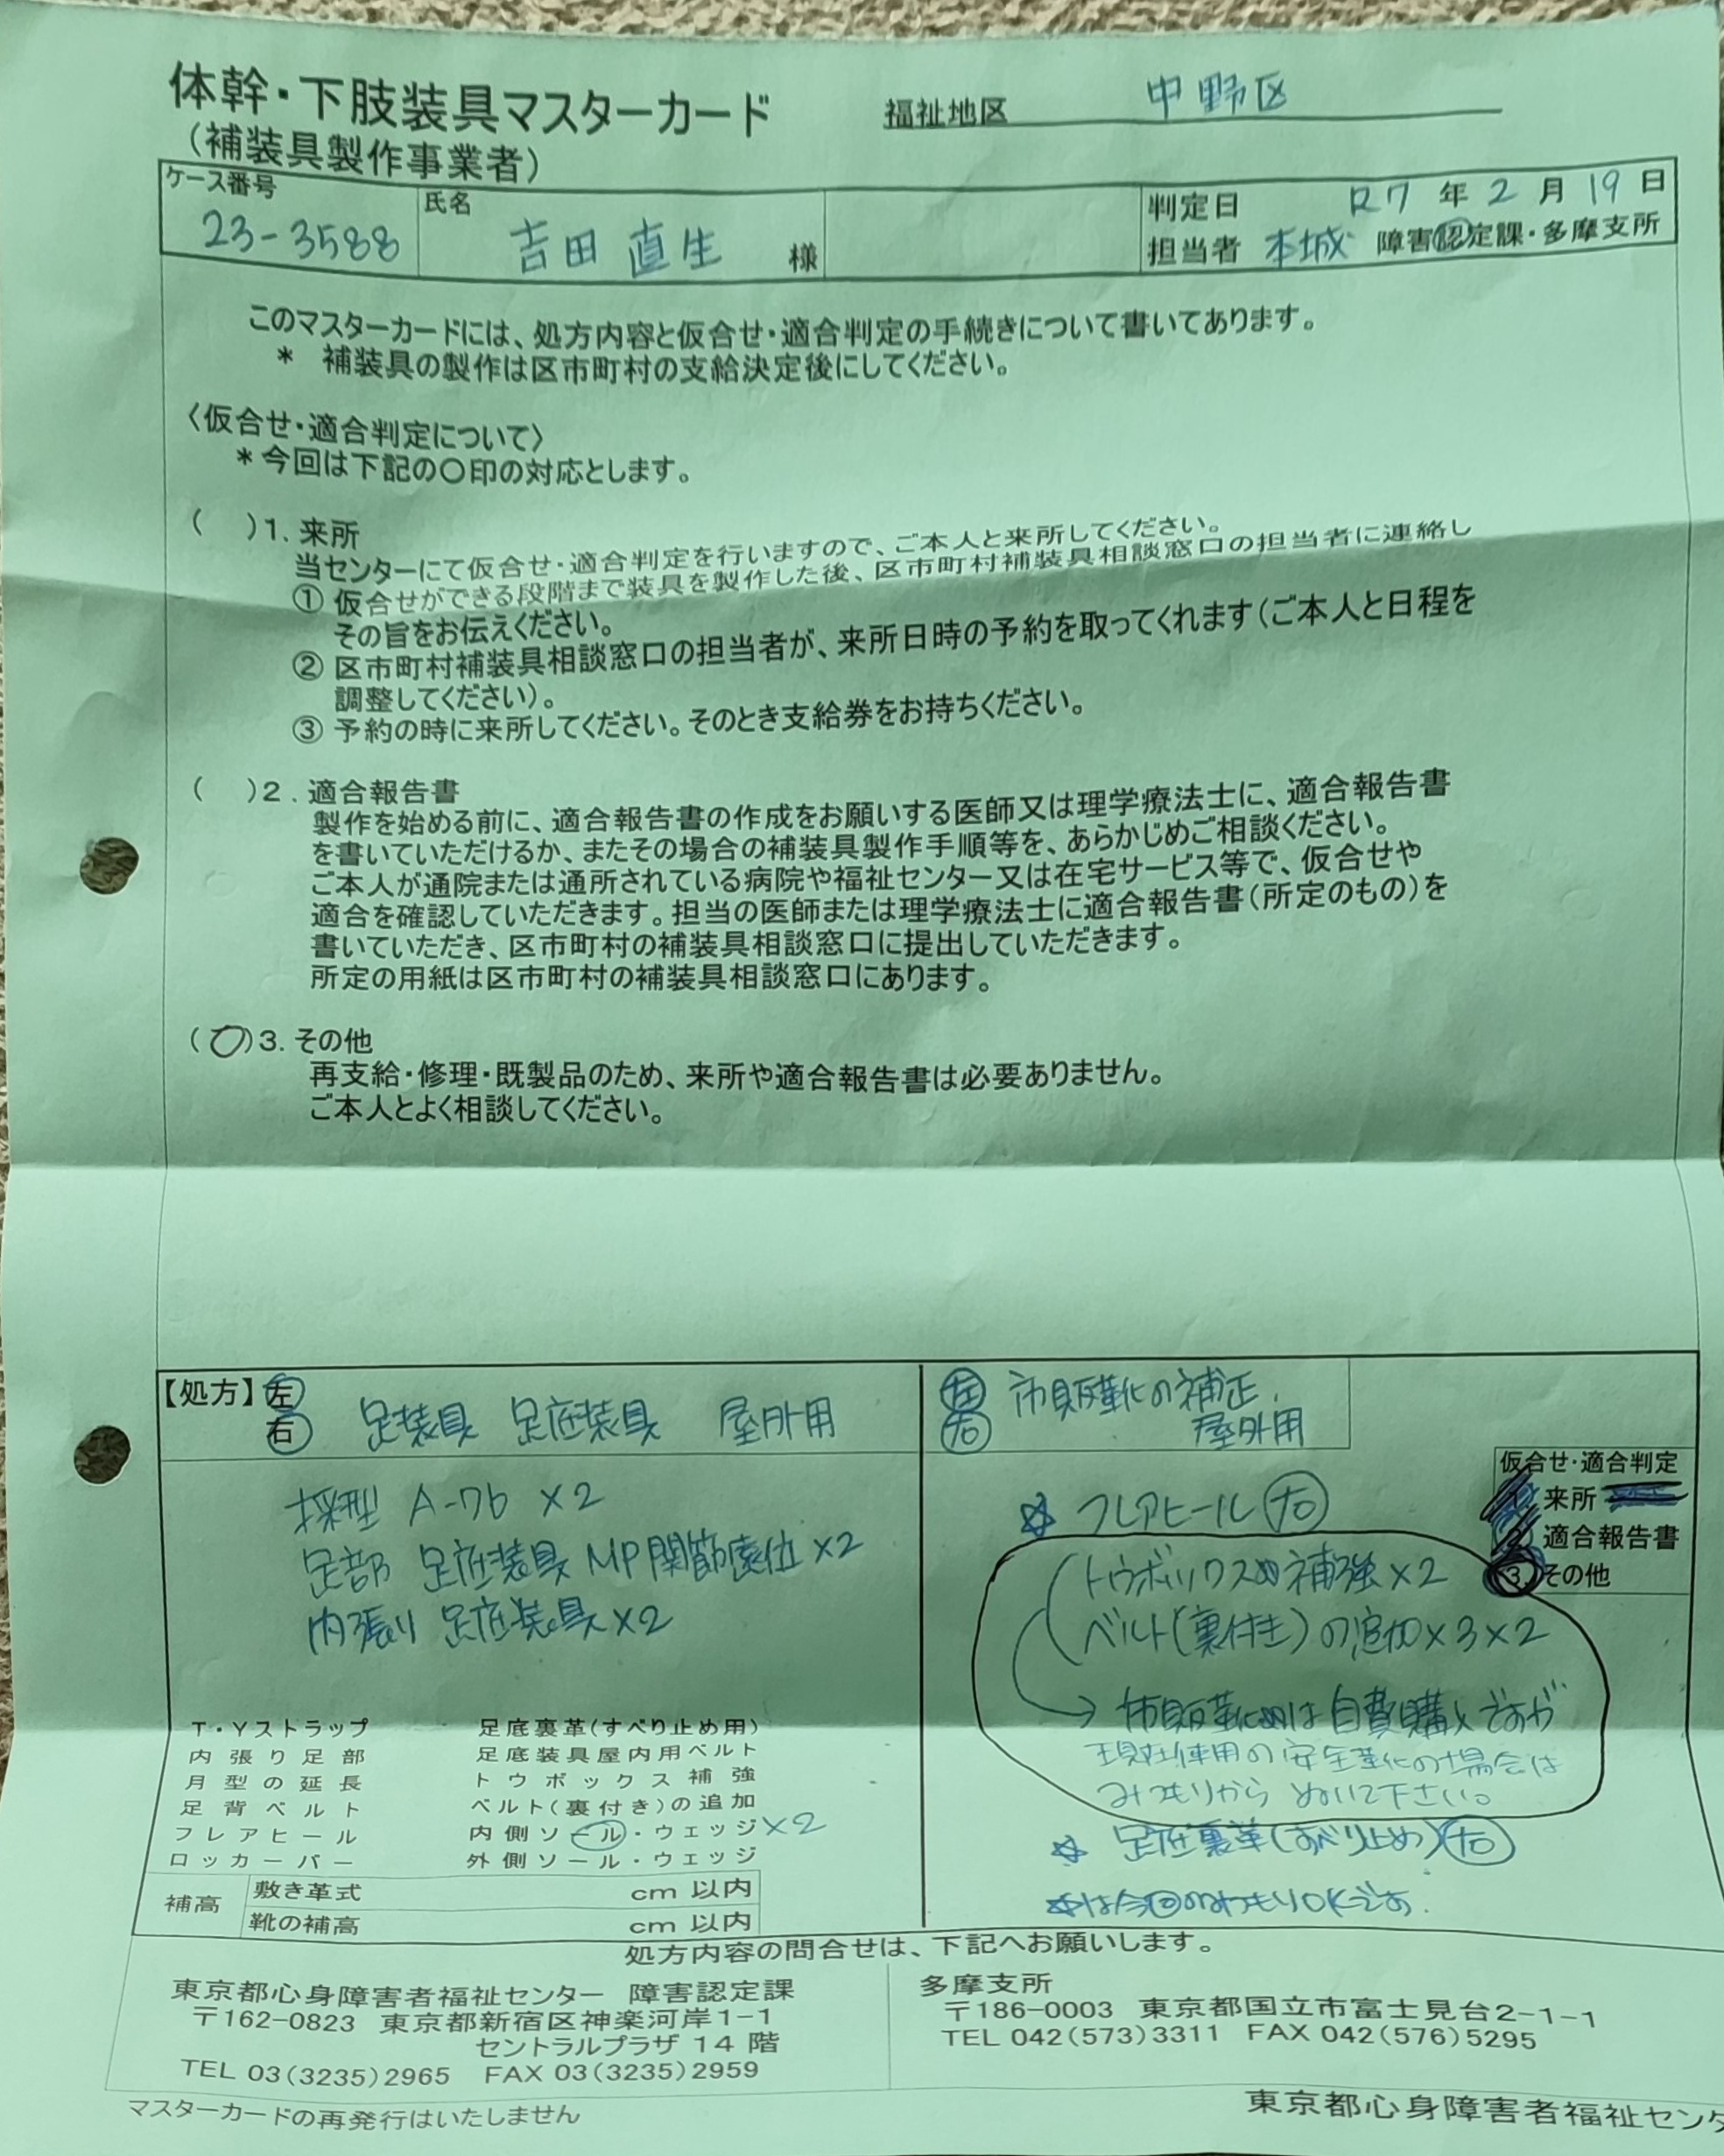 体幹・下肢装具マスターカード
(補装具製作事業者)
福祉地区 中野区
ケース番号 23-3588
氏名 吉田 直生 様
判定日 R7 年 2 月 19 日
担当者 本城 障害認定課・多摩支所
このマスターカードには、処方内容と仮合せ・適合判定の手続きについて書いてあります。
* 補装具の製作は区市町村の支給決定後にしてください。
〈仮合せ・適合判定について〉
* 今回は下記の〇印の対応とします。
( )1. 来所
当センターにて仮合せ・適合判定を行いますので、ご本人と来所してください。
① 仮合せができる段階まで装具を製作した後、区市町村補装具相談窓口の担当者に連絡し
その旨をお伝えください。
② 区市町村補装具相談窓口の担当者が、来所日時の予約を取ってくれます(ご本人と日程を
調整してください)。
③ 予約の時に来所してください。そのとき支給券をお持ちください。
( )2. 適合報告書
製作を始める前に、適合報告書の作成をお願いする医師又は理学療法士に、適合報告書
を書いていただけるか、またその場合の補装具製作手順等を、あらかじめご相談ください。
ご本人が通院または通所されている病院や福祉センター又は在宅サービス等で、仮合せや
適合を確認していただきます。担当の医師または理学療法士に適合報告書(所定のもの)を
書いていただき、区市町村の補装具相談窓口に提出していただきます。
所定の用紙は区市町村の補装具相談窓口にあります。
(〇)3. その他
再支給・修理・既製品のため、来所や適合報告書は必要ありません。
ご本人とよく相談してください。
【処方】左
右 足装具 足底装具 屋外用
採型 A-7b ×2
足部 足底装具 MP関節遠位 ×2
内張り 足底装具 ×2
T・Yストラップ 足底裏革(すべり止め用)
内張り足部 足底装具屋内用ベルト
月型の延長 トウボックス補強
足背ベルト ベルト(裏付き)の追加
フレアヒール 内側ソール・ウェッジ ×2
ロッカーバー 外側ソール・ウェッジ
補高 敷き革式 cm 以内
靴の補高 cm 以内
左 市販靴の補正
右 屋外用
仮合せ・適合判定
1. 来所
2. 適合報告書
3. その他
☆ フレアヒール 右
トウボックスの補強×2
ベルト(裏付き)の追加×3×2
→ 市販靴は自費購入ですが
現在使用の安全靴の場合は
みつもりから ぬいて下さい。
☆ 足底裏革(すべり止め) 右
☆は今回のみつもりOKです。
処方内容の問合せは、下記へお願いします。
東京都心身障害者福祉センター 障害認定課
〒162-0823 東京都新宿区神楽河岸1-1
セントラルプラザ 14 階
TEL 03(3235)2965 FAX 03(3235)2959
多摩支所
〒186-0003 東京都国立市富士見台2-1-1
TEL 042(573)3311 FAX 042(576)5295
マスターカードの再発行はいたしません
東京都心身障害者福祉センタ